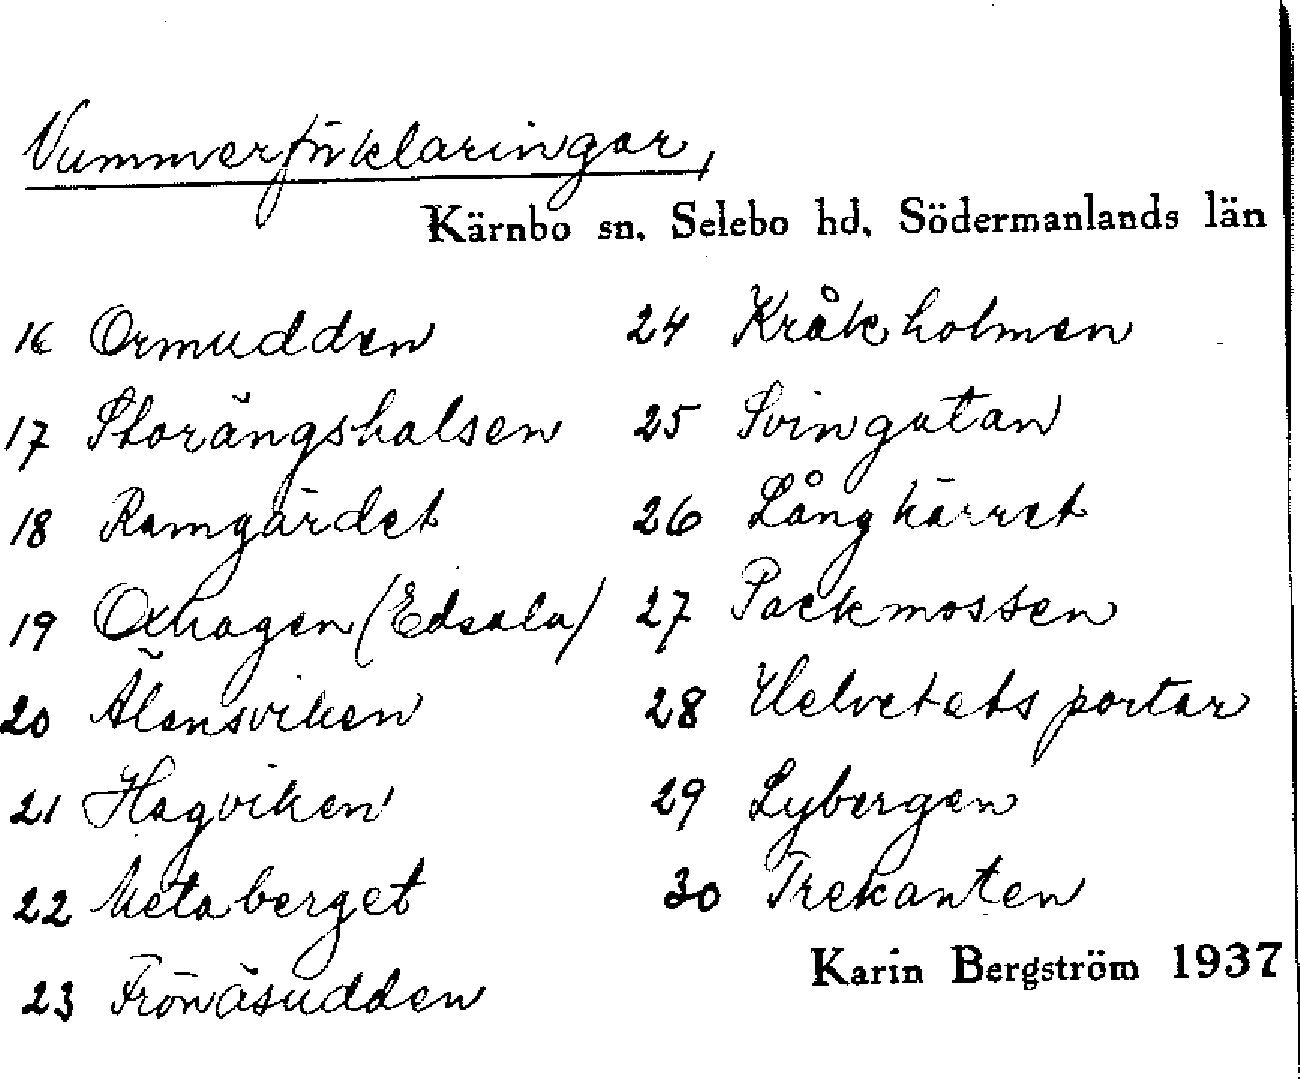 Nummerförklaringar,
Kärnbo sn. Selebo hd. Södermanlands län
16 Ormudden
17 Storängshalsen
18 Ramgärdet
19 Oxhagen (Edsala)
20 Älensviken
21 Hagviken
22 Metaberget
23 Frönäsudden
24 Kråkholmen
25 Svingatan
26 Långkärret
27 Packmossen
28 Helvetets portar
29 Lybergen
30 Trekanten
Karin Bergström 1937